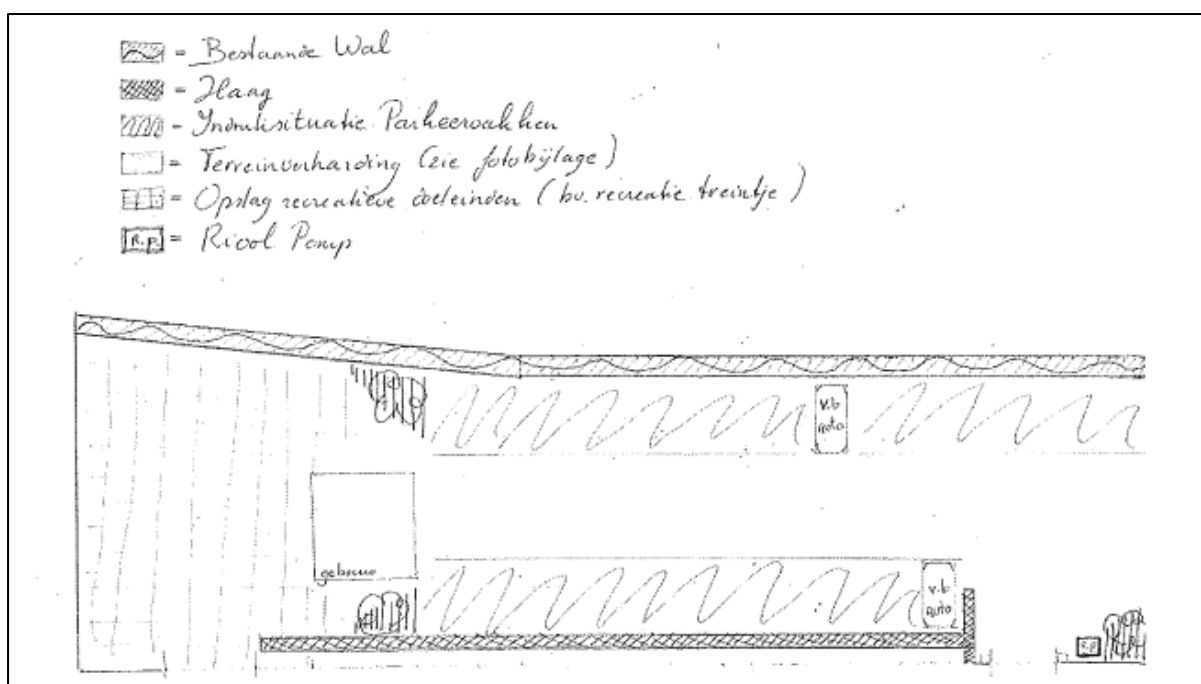 = Bestaande Wal
= Haag
= Indruksituatie Parkeervakken
= Terreinverharding (zie fotobijlage)
= Opslag recreatieve doeleinden (bv. recreatie treintje)
R.P. = Riool Pomp
v.b auto
gebouw
v.b auto
R.P